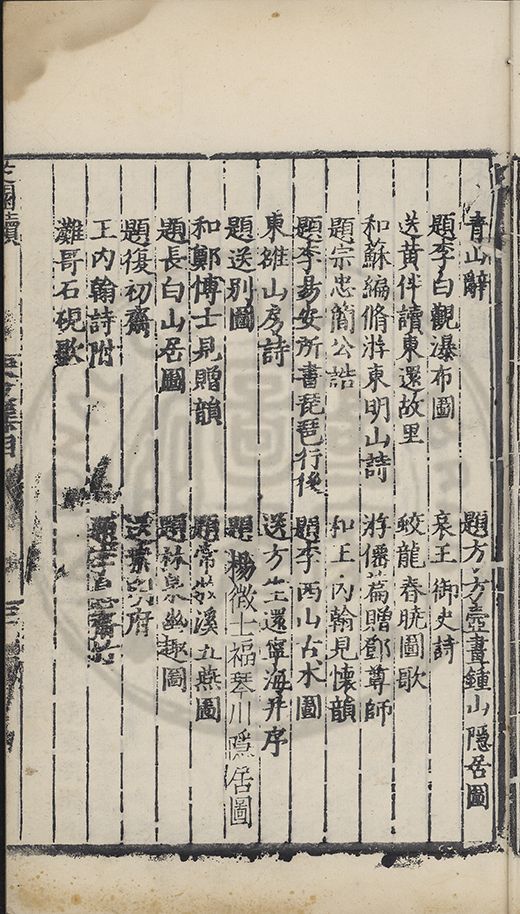 青山辭　題方方壺畫鍾山隱居圖
題李白觀瀑布圖　哀王御史詩
送黄伴讀東還故里　蛟龍春曉圖歌
和蘇編脩游東明山詩　游僊篇贈鄧尊師
題宗忠簡公誥　和王內翰見懷韻
題李易安所書琵琶行後　題李西山古木圖
東雒山房詩　送方生還寧海并序
題送別圖　題楊徵士福琴川隱居圖
和鄭博士見贈韻　題常溪五燕圖
題長白山居圖　題林泉幽趣圖
題復初齋　送葉府
王內翰詩附　題齋
灘哥石硯歌
園續　目　三